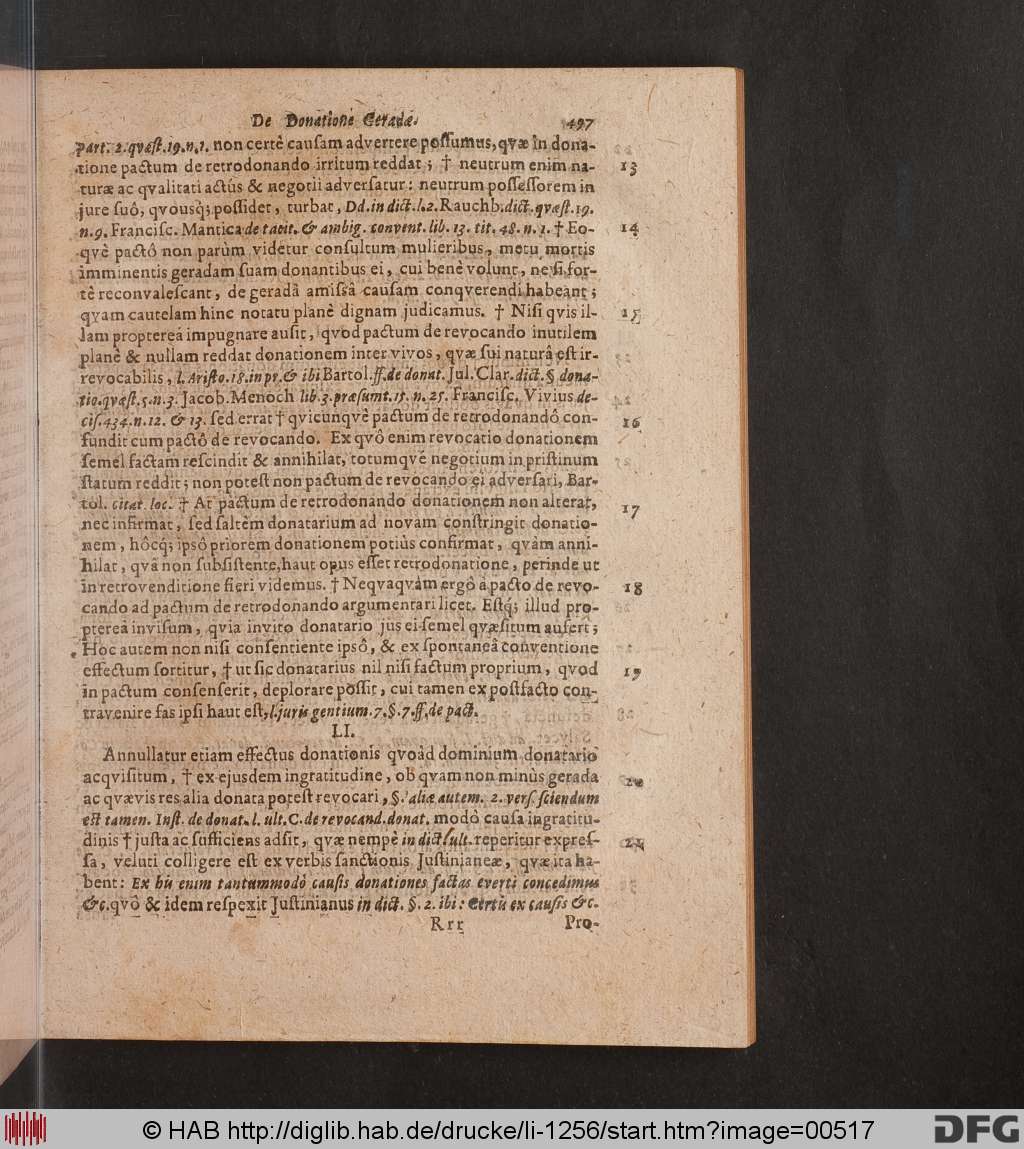 De Donatione Geradæ. 497
part. 2. qvæst. 19. n. 1. non certè causam advertere possumus, qvæ in dona-
tione pactum de retrodonando irritum reddat; † neutrum enim na- 13
turæ ac qvalitati actûs & negotii adversatur: neutrum possessorem in
jure suô, qvousq; possidet, turbat, Dd. in dict. l. 2. Rauchb. dict. qvæst. 19.
n. 9. Francisc. Mantica de tacit. & ambig. convent. lib. 13. tit. 48. n. 1. † Eo- 14
qvè pactô non parùm videtur consultum mulieribus, metu mortis
imminentis geradam suam donantibus ei, cui benè volunt, ne si for-
tè reconvalescant, de geradâ amissâ causam conqverendi habeant;
qvam cautelam hinc notatu planè dignam judicamus. † Nisi qvis il- 15
lam proptereà impugnare ausit, qvod pactum de revocando inutilem
planè & nullam reddat donationem inter vivos, qvæ sui naturâ est ir-
revocabilis, l. Aristo. 18. in pr. & ibi Bartol. ff. de donat. Jul. Clar. dict. § dona-
tio. qvæst. 5. n. 3. Jacob. Menoch lib. 3. præsumt. 15. n. 25. Francisc. Vivius de-
cis. 434. n. 12. & 13. sed errat † qvicunqvè pactum de retrodonandô con- 16
fundit cum pactô de revocando. Ex qvô enim revocatio donationem
semel factam rescindit & annihilat, totumqvè negotium in pristinum
statum reddit; non potest non pactum de revocando ei adversari, Bar-
tol. citat. loc. † At pactum de retrodonando donationem non alterat, 17
nec infirmat, sed saltèm donatarium ad novam constringit donatio-
nem, hôcq; ipsô priorem donationem potiùs confirmat, qvàm anni-
hilat, qvâ non subsistente, haut opus esset retrodonatione, perinde ut
in retrovenditione fieri videmus. † Neqvaqvàm ergô à pacto de revo- 18
cando ad pactum de retrodonando argumentari licet. Estq; illud pro-
ptereà invisum, qvia invito donatario jus ei semel qvæsitum aufert;
Hoc autem non nisi consentiente ipsô, & ex spontaneâ conventione
effectum sortitur, † ut sic donatarius nil nisi factum proprium, qvod 19
in pactum consenserit, deplorare possit, cui tamen ex postfacto con-
travenire fas ipsi haut est, l. juris gentium. 7. §. 7. ff. de pact.
LI.
Annullatur etiam effectus donationis qvoàd dominium donatario
acqvisitum, † ex ejusdem ingratitudine, ob qvam non minùs gerada 20
ac qvævis res alia donata potest revocari, §. aliæ autem. 2. vers. sciendum
est tamen. Inst. de donat. l. ult. C. de revocand. donat. modò causa ingratitu-
dinis † justa ac sufficiens adsit, qvæ nempè in dict. l. ult. reperitur expres- 21
sa, veluti colligere est ex verbis sanctionis Justinianeæ, qvæ ita ha-
bent: Ex his enim tantummodò causis donationes factas everti concedimus
&c. qvô & idem respexit Justinianus in dict. §. 2. ibi: Certis ex causis &c.
Rrr Pro-
© HAB http://diglib.hab.de/drucke/li-1256/start.htm?image=00517
DFG